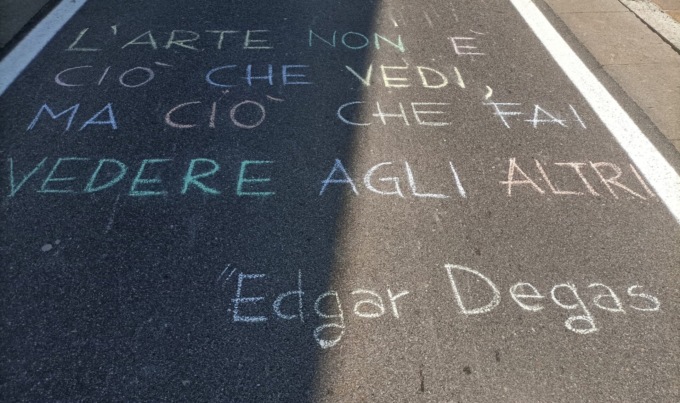 L'ARTE NON È
CIÒ CHE VEDI,
MA CIÒ CHE FAI
VEDERE AGLI ALTRI
"Edgar Degas